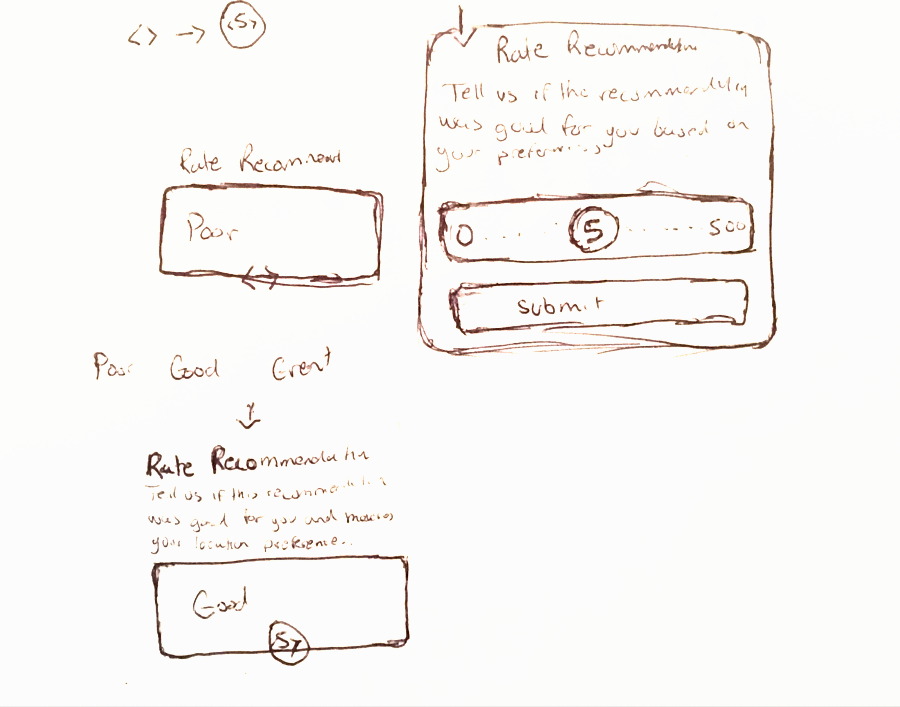 <> → <5>
Rate Recomment
Poor
<>
Poor Good Great
Rate Recommendation
Tell us if this recommendation
was good for you and
your location preference..
Good
<5>
Rate Recommendation
Tell us if the recommendation
was good for you based on
your preferences
0 ..... 5 ..... 500
submit